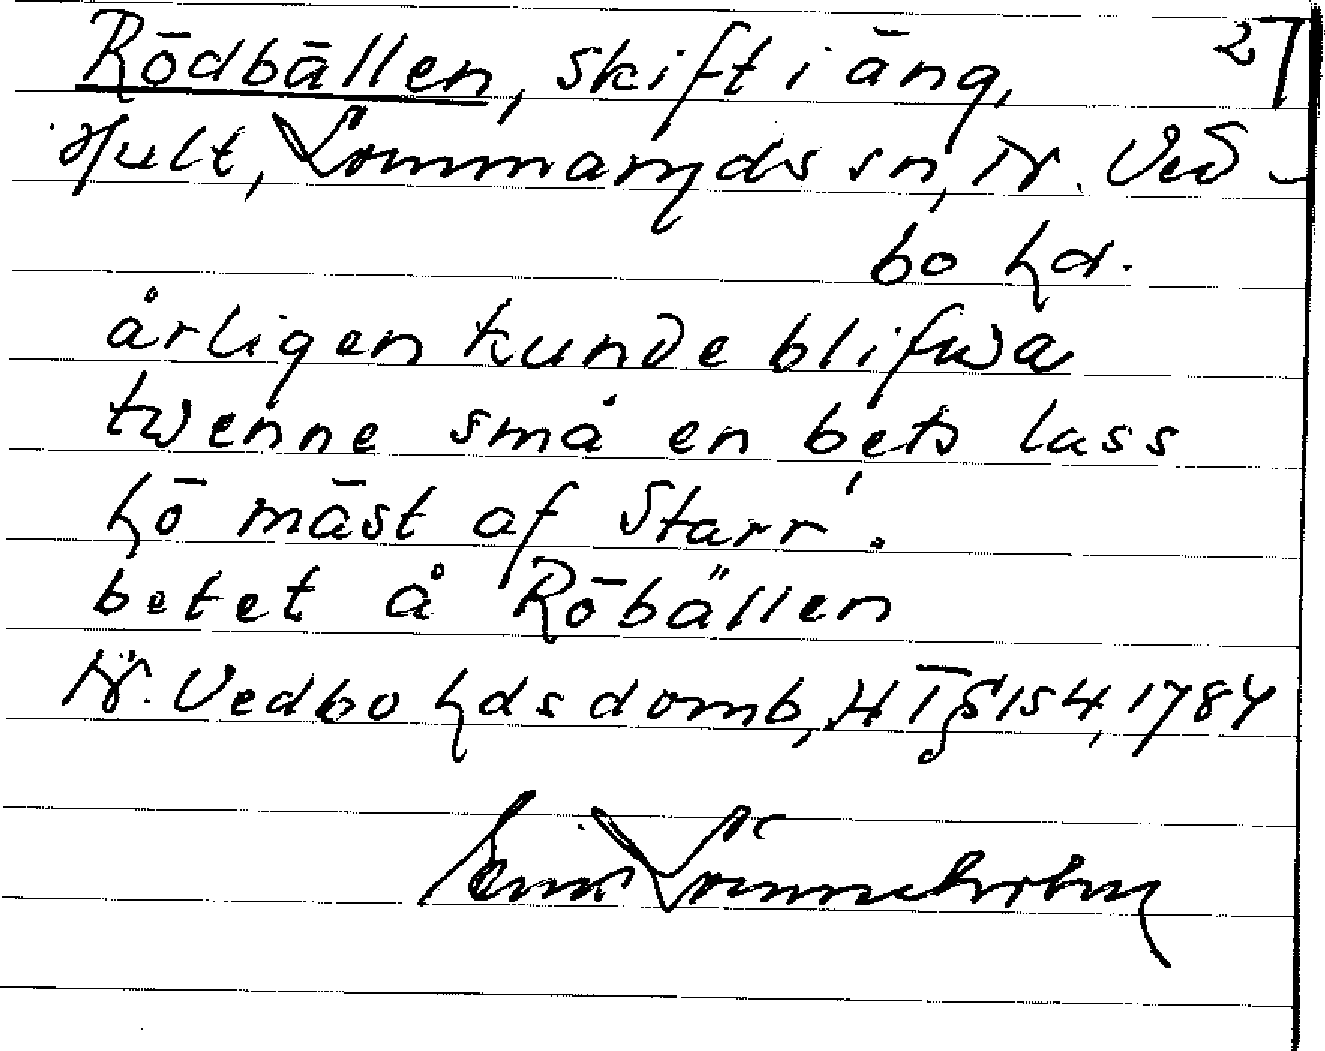 Rödbällen, skift i äng, 27
Hult, Lommaryds sn, N. Ved-
bo hd.
årligen kunde blifwa
twenne små en bets lass
hö mäst af Starr.
betet å Röbällen
N. Vedbo hds domb, HT § 154, 1784